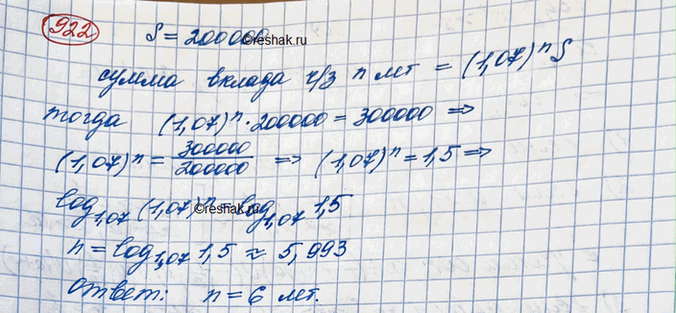 922
S = 200 000
©reshak.ru
сумма вклада ч/з n лет = (1,07)ⁿ S
тогда (1,07)ⁿ · 200000 = 300000 ⇒
(1,07)ⁿ = 300000/200000 ⇒ (1,07)ⁿ = 1,5 ⇒
log₁,₀₇ (1,07)ⁿ = log₁,₀₇ 1,5
©reshak.ru
n = log₁,₀₇ 1,5 ≈ 5,993
Ответ: n = 6 лет.